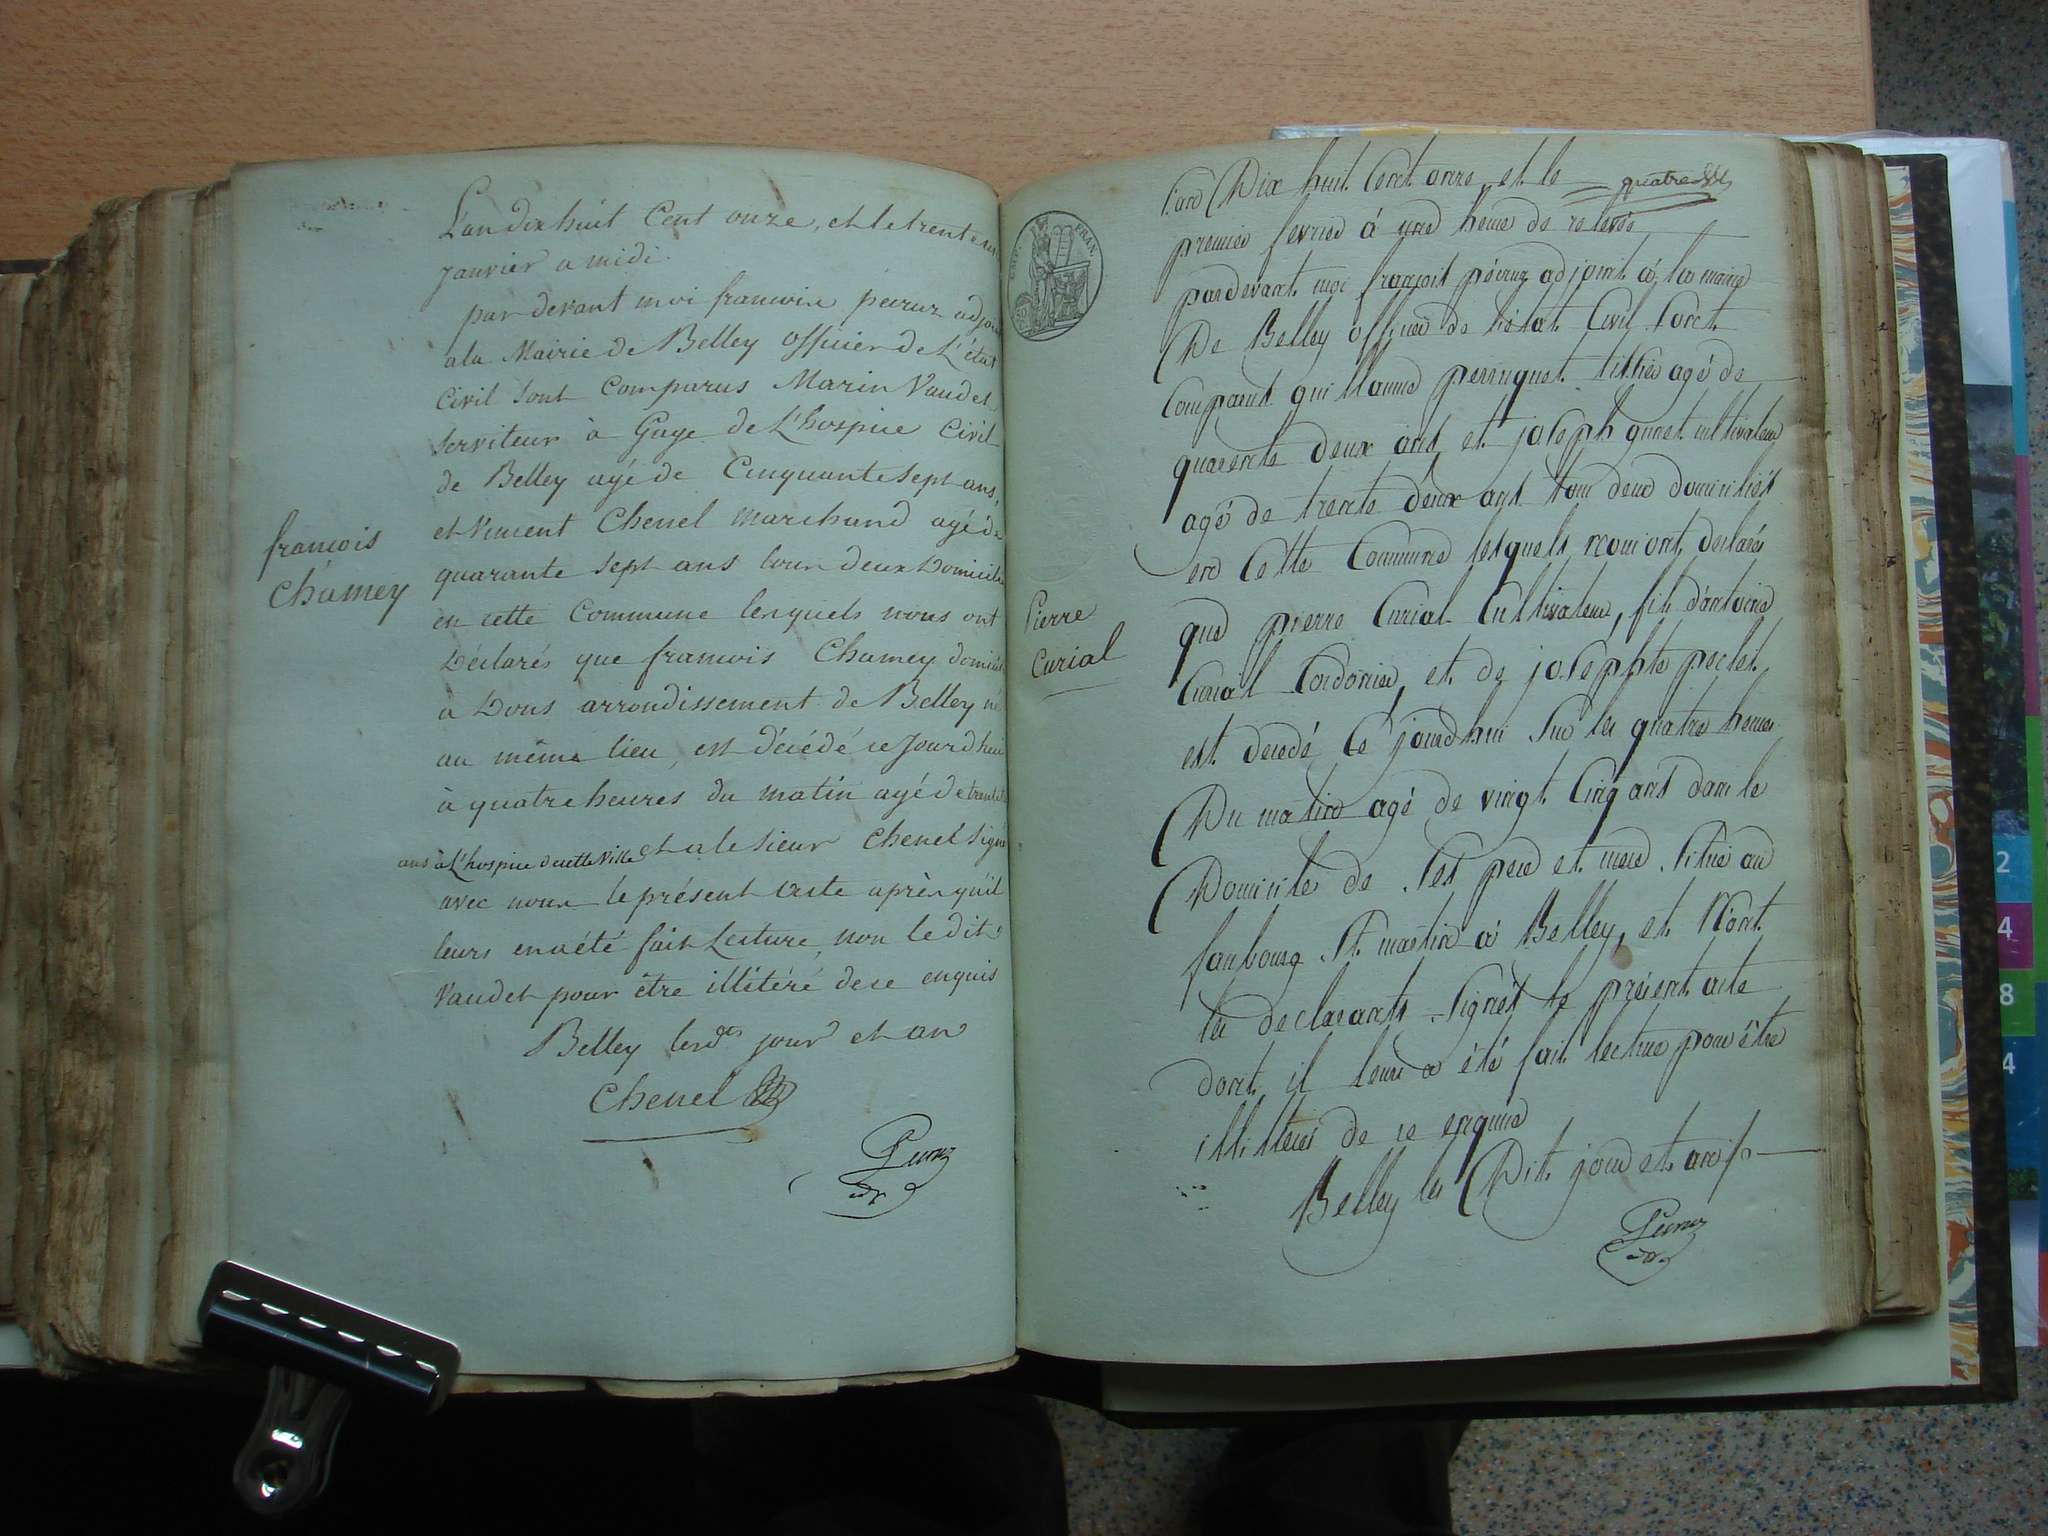 L'an dix huit Cent onze, et le trente un
Janvier a midi.
par devant moi francois péeruz adjoin
a la Mairie de Belley officier de L'état
Civil Sont Comparus Marin Vaudet
Serviteur à Gage de L'hospice Civil
de Belley agé de Cinquante Sept ans,
et Vincent Chenel marchand agé de
quarante Sept ans tous deux Domicilié
en cette Commune lesquels nous ont
Déclarés que francois Chamey domicili
a Dons arrondissement de Belley né
au même lieu, est décédé ce Jourd'hui
à quatre heures du matin agé de
ans à L'hospice de cette Ville et a le Sieur Chenel Signé
avec nous le présent acte après qu'il
leurs en a été fait Lecture, non le dit
Vaudet pour être illitéré de ce enquis
Belley les ds jour et an
Chenel
Peeruz
francois
Chamey
quatre
L'an Dix huit Cent onze et le
premier fevrier à une heure de relevée
pardevant moi françois péeruz adjoint à la mairie
De Belley officier de l'état Civil Sont
Comparus guillaume perruquet agé de
quarente deux ans et joseph cultivateur
agé de trente deux ans tous deux domiciliés
en Cette Commune lesquels nous ont declarés
que pierre Curial Cultivateur, fils d'antoine
Curial Cordonier, et de josephte peclet
est decedé Ce jourd'hui Sur les quatre heures
Du matin agé de vingt Cinq ans dans le
Domicile de Ses pere et mere Situé au
faubourg St. martin à Belley, et N'ont
les declarants Signés le présent acte
dont il leurs a été fait lecture pour être
illitterés de ce enquis
Belley les Dit jour et an
Peeruz
Pierre
Curial
EMP. FRAN.
2
4
8
4